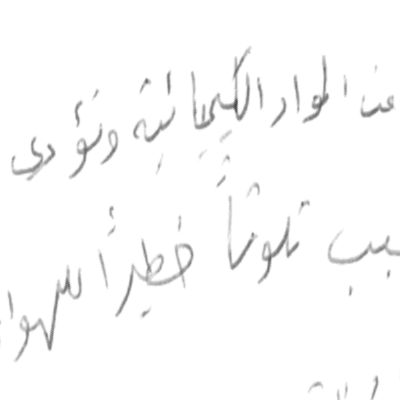 عن المواد الكيميائية وتؤدي
تلوثاً خطيراً للهوا